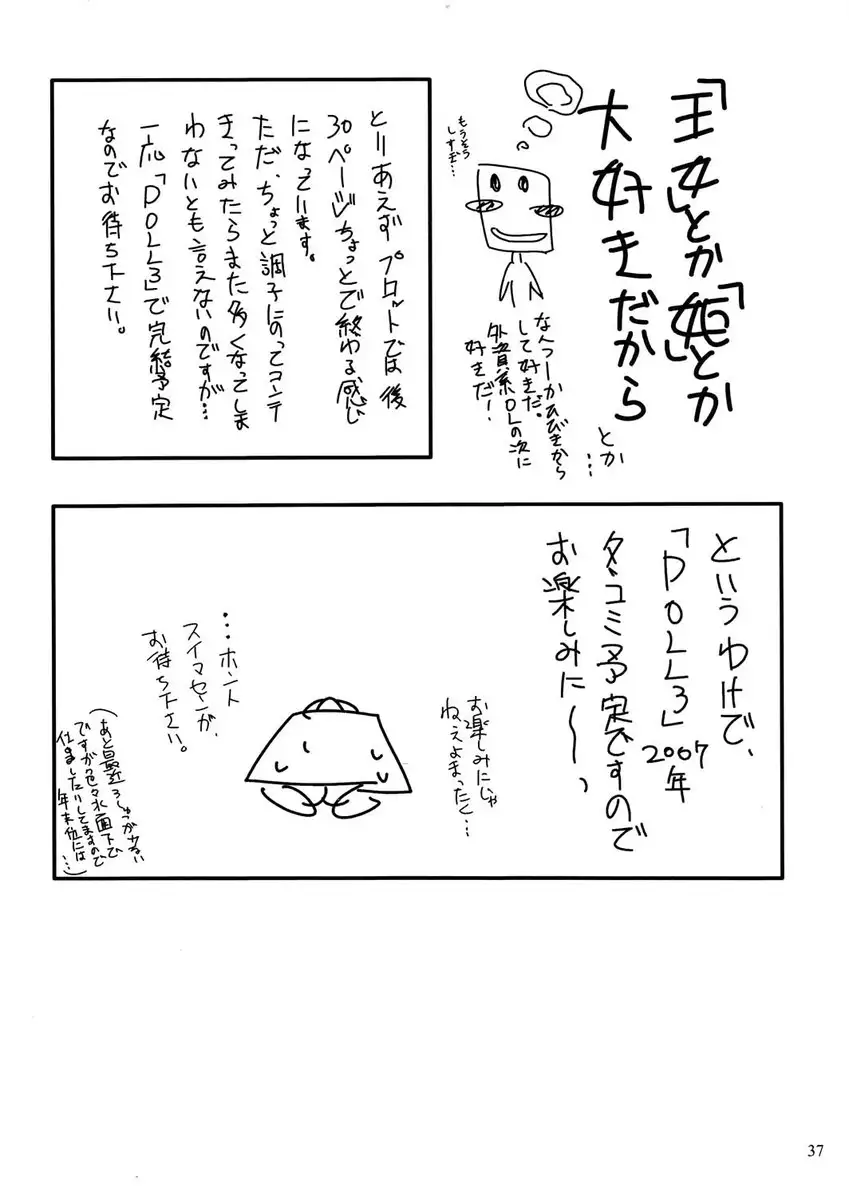 「王女」とか「姫」とか
大好きだから
とか
…
もうそう
しすぎ…
なんつーかひびきから
して好きだ。
外資系OLの次に
好きだ!
とりあえずプロットでは後
30ページちょっとで終わる感じ
になっています。
ただ、ちょっと調子にのってコンテ
きってみたらまた多くなってしま
わないとも言えないのですが…
一応「DOLL3」で完結予定
なのでお待ち下さい。
というわけで、
「DOLL3」2007年
冬コミ予定ですので
お楽しみに〜っ
お楽しみにじゃ
ねぇよまったく…
…ホント
スイマセンが、
お待ち下さい。
(あと最近ろしゅつが少ない
ですが色々水面下で
仕込ましたりしてますので
年末位には
…)
37